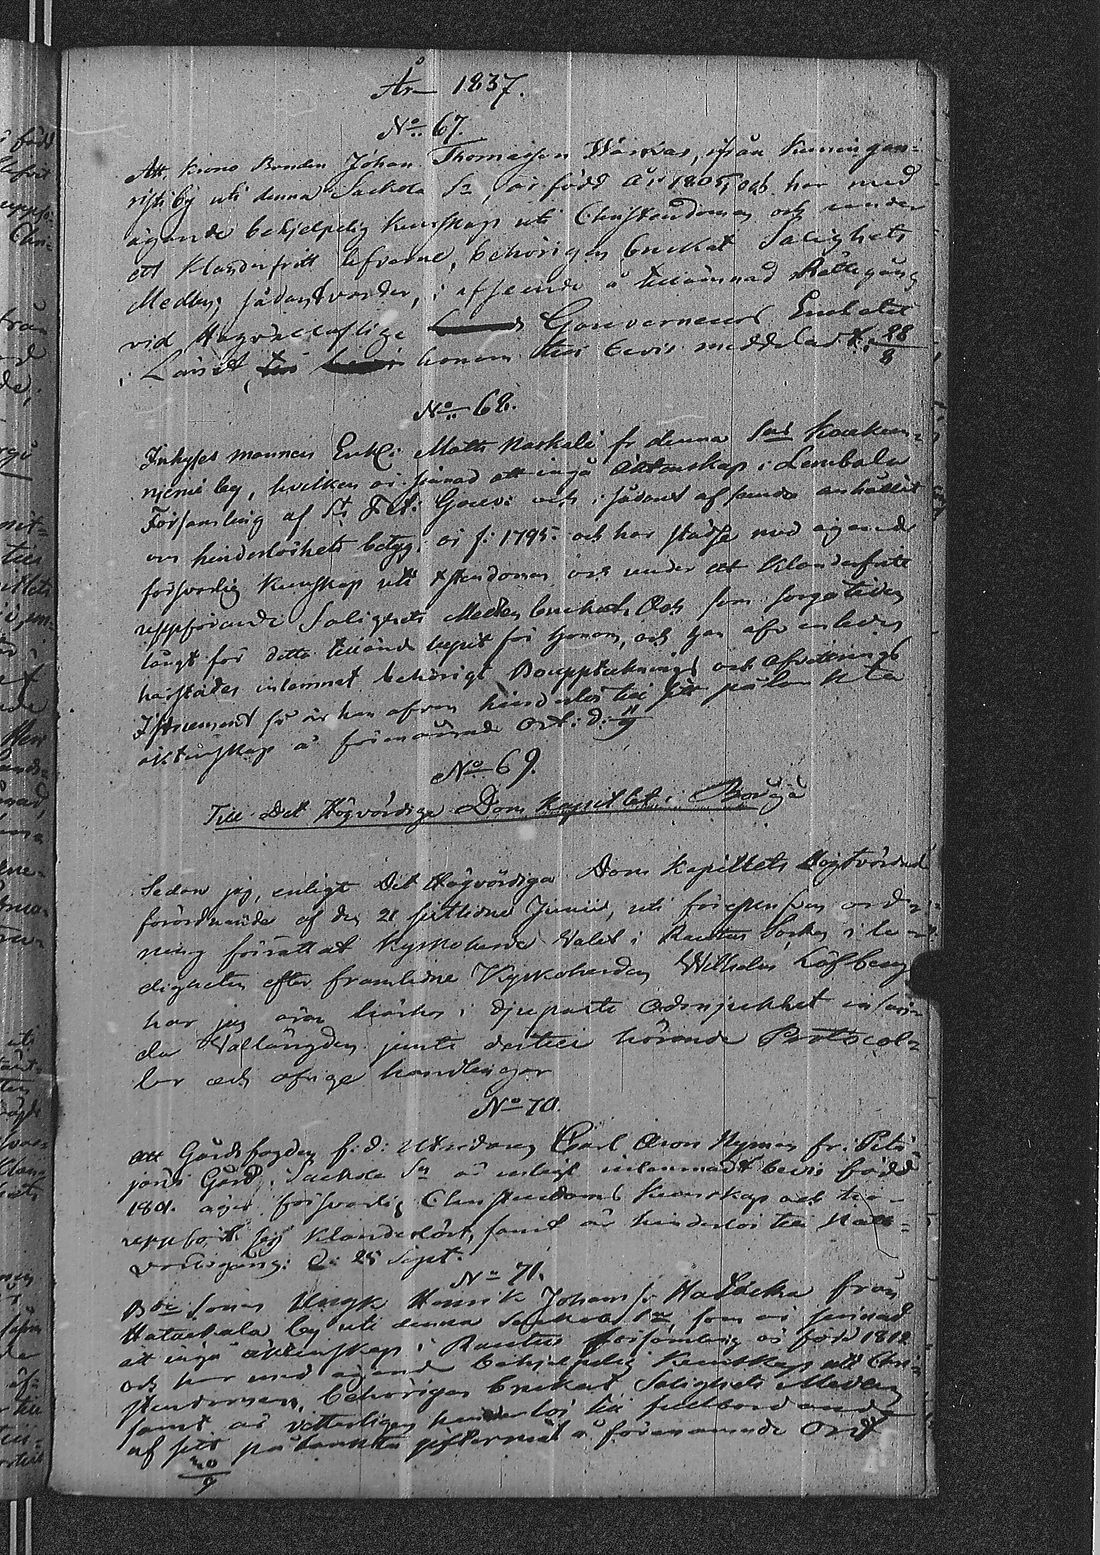 År 1837.
No 67.
Att Krono Bonden Johan Thomasson Wärras, ifrån Kuningan-
risti by uti denna Sackola Sn, är född År 1805, och har med
ägande behjelpelig Kunskap uti Christendomen och under
ett klanderfritt lefverne, behörigen brukat Salighets
Medlen, sådant varder, i afseende å tillämnad Rättegång
vid Högvälloflige Gouverneurs Embetet
i Länet, honom till bevis meddeladt, 28/8
No 68.
Inhyses mannen Enkl: Matts fr denna Sn
niemi by, hvilken är sinnad att ingå Äktenskap i Lembala
Församling af St. Gouv: och i sådant afseende anhållit
om hinderlöshets betyg: är f: 1795. och har städse med ägande
försvarlig Kunskap uti Xstendomen och under ett klanderfritt
uppförande Salighets Medlen brukat, Och som sorgetiden
långt för detta tilländalupit för honom, och han
inlemnat behörigt Bouppteknings och Afvittrings
Instrument så är han äfven hinderlös till sitt påtänkta
äktenskap å förenämnde Ort: d:
No 69.
Till Det Högvördige Dom Kapitlet i Borgå
Sedan jag, enligt Det Högvördiga Dom Kapitlets Högtvördade
förordnande af den 21 sistlidne Junii, uti föreskrifven ord-
ning förrättat Kyrkoherde Valet i Rautus Sochn, i le-
digheten efter framlidne Kyrkoherden Wilhelm Löfberg
har jag äran härhos i djupaste Ödmjukhet insän-
da Vallängden jemte dertill hörande Protocol-
ler och öfrige handlingar
No 70.
Att Gårdsfogden f: d: Carl Aron Nyman fr: Petä-
järvi Gård i Sackola Sn är enligt inlemnadt bevis född
1801. äger försvarlig Christendoms Kunskap och har
uppfört sig klanderlöst, samt är hinderlös till Natt-
vardsgång: d: 25 Sept.
No 71.
Bde sonen Ungk Henrik Johansson från
Hatakala by uti denna Sackola Sn, som är sinnad
att ingå äktenskap i Rautus församling är född 1812
och har med ägande behjelpelig Kunskap uti Chri-
stendomen, behörigen brukat Salighets Medlen
samt är vitterligen hinderlös till fullbordande
af sitt påtänkta giftermål å förenämnde Ort
20/9